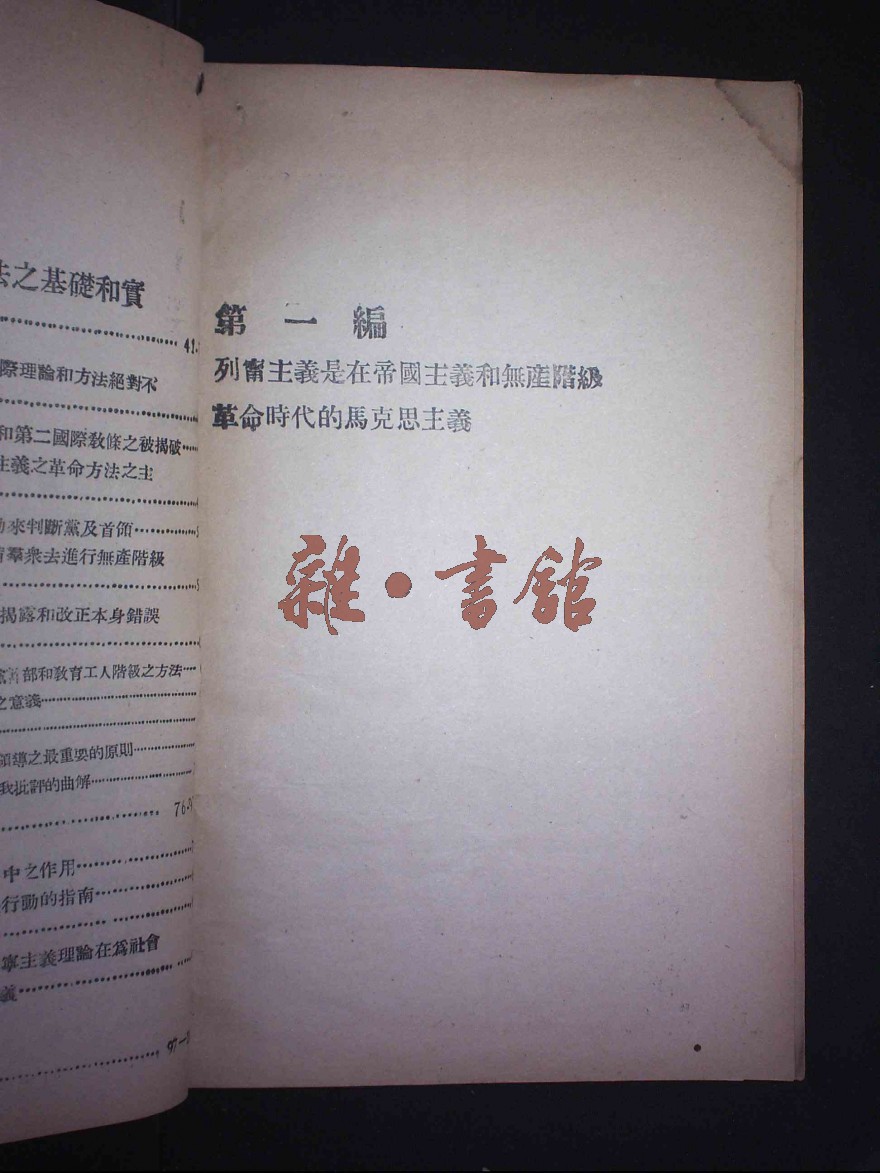 法之基礎和實
41-
際理論和方法絕對不
和第二國際教條之被揭破
主義之革命方法之主
來判斷黨及首領
羣衆去進行無產階級
揭露和改正本身錯誤
部和教育工人階級之方法
之意義
領導之最重要的原則
我批評的曲解
76-
中之作用
行動的指南
寧主義理論在爲社會
義
97—
第一編
列甯主義是在帝國主義和無產階級
革命時代的馬克思主義
雜·書館